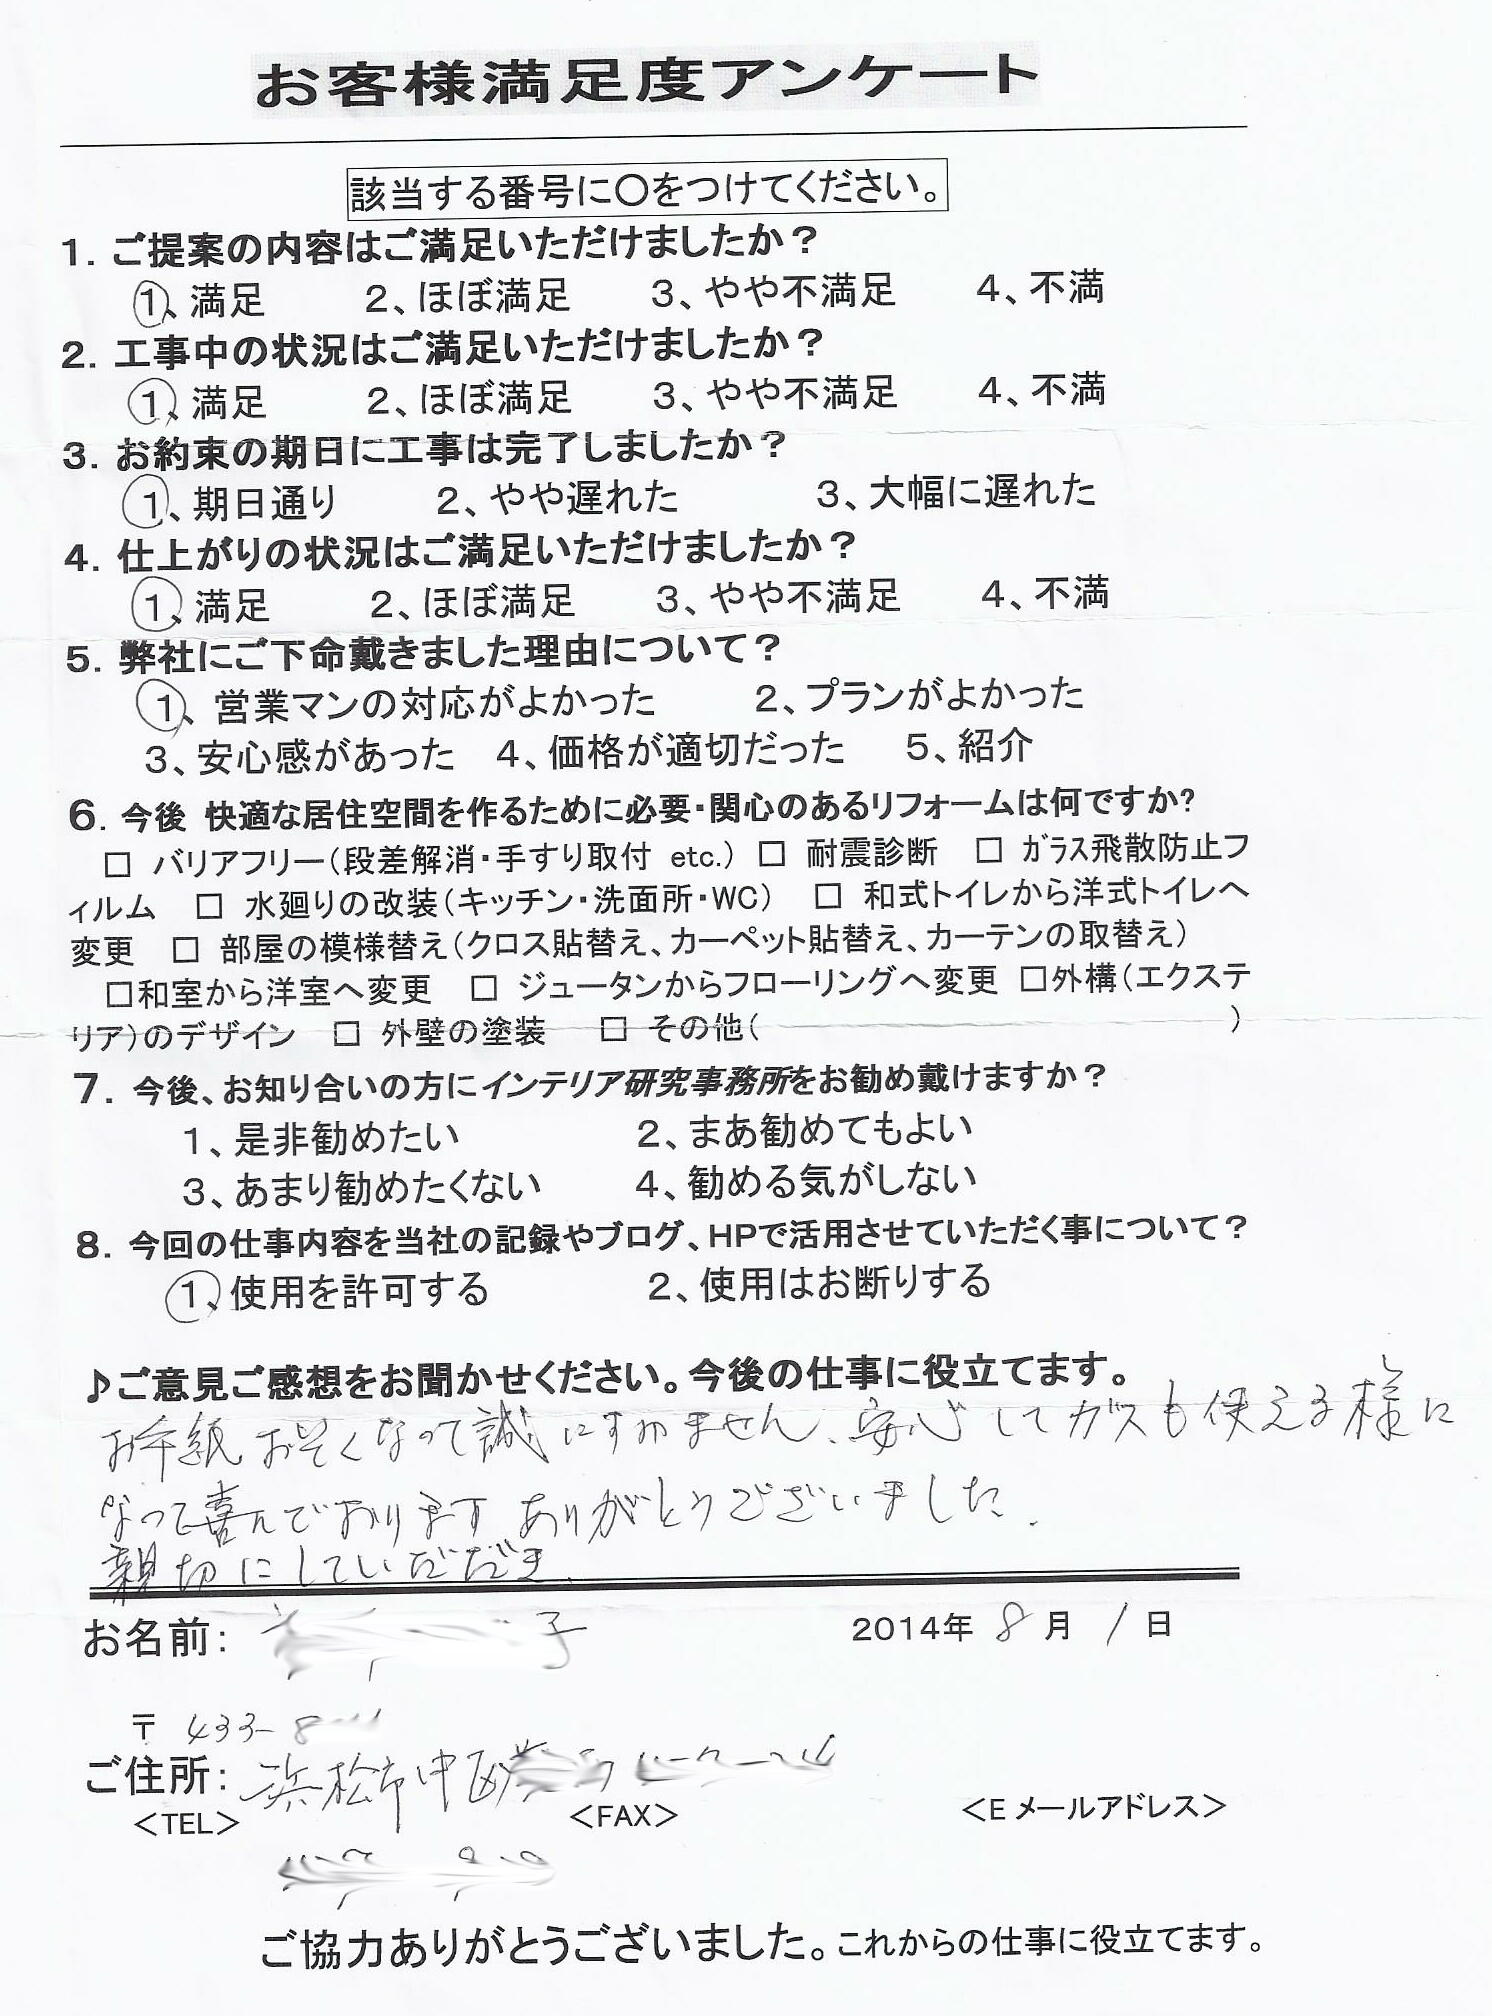 お客様満足度アンケート
該当する番号に〇をつけてください。
1. ご提案の内容はご満足いただけましたか？
1、満足 2、ほぼ満足 3、やや不満足 4、不満
2. 工事中の状況はご満足いただけましたか？
1、満足 2、ほぼ満足 3、やや不満足 4、不満
3. お約束の期日に工事は完了しましたか？
1、期日通り 2、やや遅れた 3、大幅に遅れた
4. 仕上がりの状況はご満足いただけましたか？
1、満足 2、ほぼ満足 3、やや不満足 4、不満
5. 弊社にご下命戴きました理由について？
1、営業マンの対応がよかった 2、プランがよかった
3、安心感があった 4、価格が適切だった 5、紹介
6. 今後 快適な居住空間を作るために必要・関心のあるリフォームは何ですか?
□ バリアフリー（段差解消・手すり取付 etc.） □ 耐震診断 □ ｶﾞﾗｽ飛散防止フ
ィルム □ 水廻りの改装（キッチン・洗面所・WC） □ 和式トイレから洋式トイレへ
変更 □ 部屋の模様替え（クロス貼替え、カーペット貼替え、カーテンの取替え）
□和室から洋室へ変更 □ ジュータンからフローリングへ変更 □外構（エクステ
リア）のデザイン □ 外壁の塗装 □ その他（ ）
7. 今後、お知り合いの方にインテリア研究事務所をお勧め戴けますか？
1、是非勧めたい 2、まあ勧めてもよい
3、あまり勧めたくない 4、勧める気がしない
8. 今回の仕事内容を当社の記録やブログ、HPで活用させていただく事について？
1、使用を許可する 2、使用はお断りする
♪ご意見ご感想をお聞かせください。今後の仕事に役立てます。
お手紙おそくなって誠にすみません、安心してガスも使える様に
なって喜んでおります ありがとうございました.
親切にしていただき、
お名前： 子 2014年 8月 1日
〒 433-8
ご住所： 浜松市中区
＜TEL＞ ＜FAX＞ ＜E メールアドレス＞
ご協力ありがとうございました。これからの仕事に役立てます。